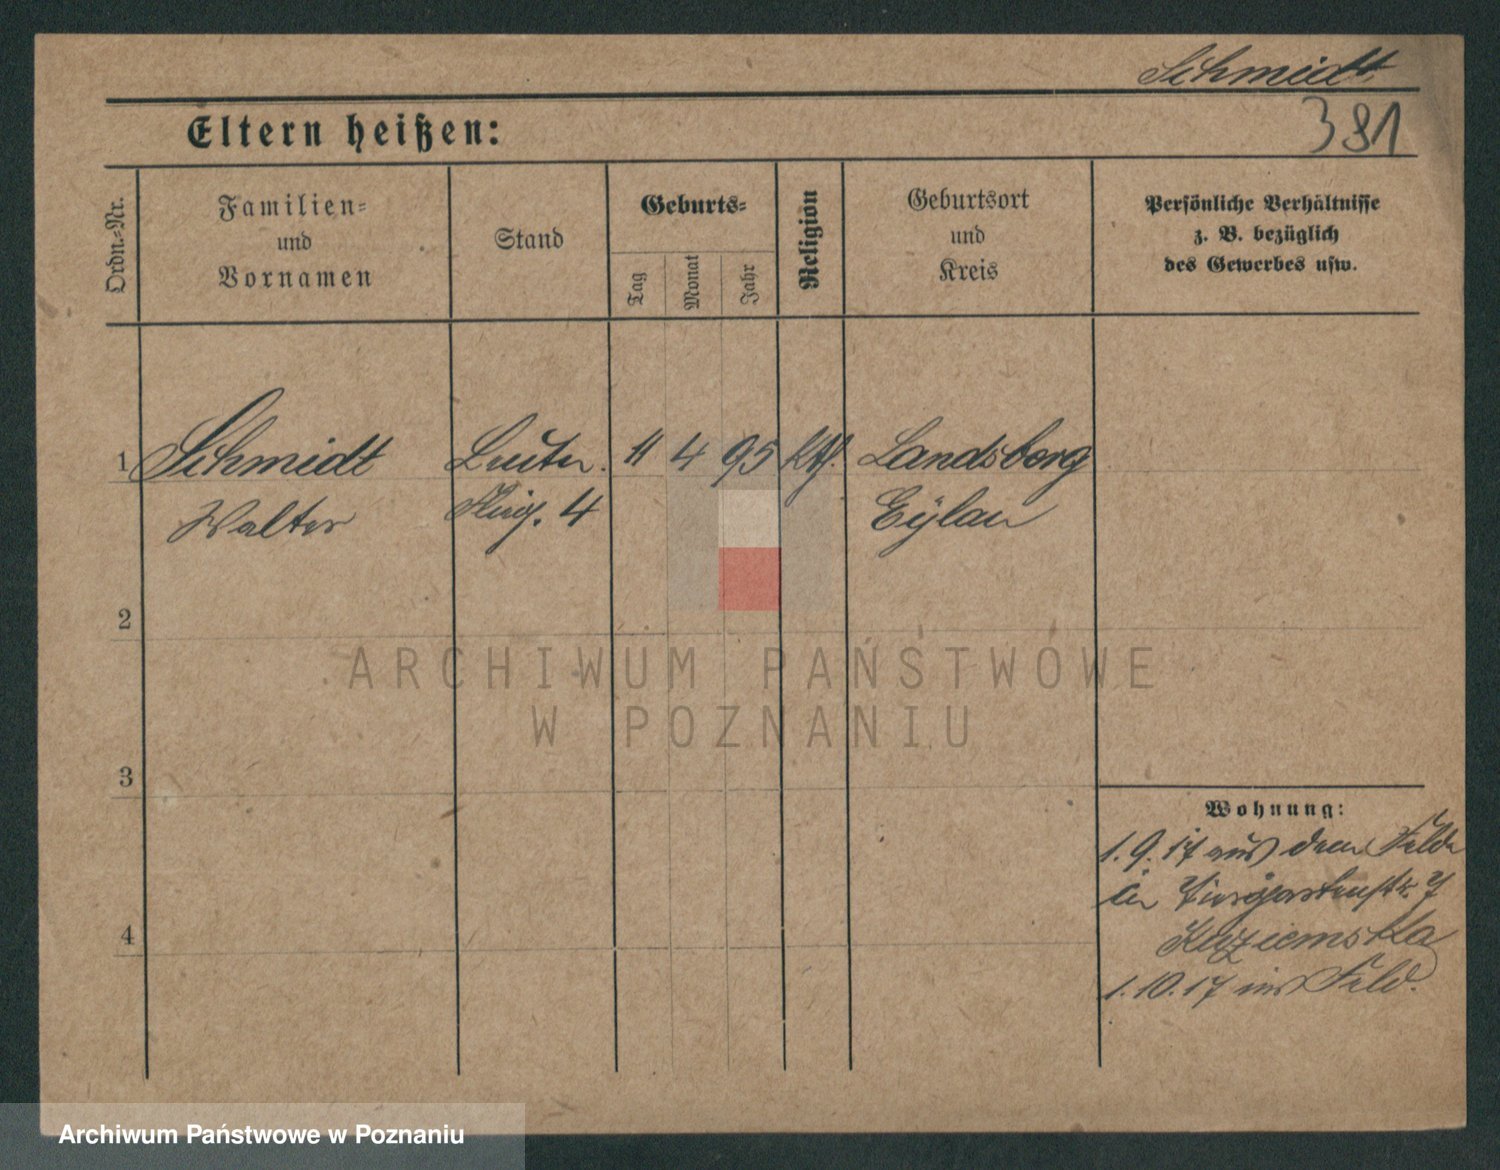 Schmidt
Eltern heißen:
381
Ordn.-Nr.
Familien-
und
Vornamen
Stand
Geburts-
Tag
Monat
Jahr
Religion
Geburtsort
und
Kreis
Persönliche Verhältnisse
z. B. bezüglich
des Gewerbes usw.
1 Schmidt 11 4 95 kth. Landsberg
Walter 4 Eylau
2
3
4
Wohnung:
1.9.17 aus dem Felde
in Tiergartenstr. 7
1.10.17 ins Feld.
ARCHIWUM PAŃSTWOWE
W POZNANIU
Archiwum Państwowe w Poznaniu